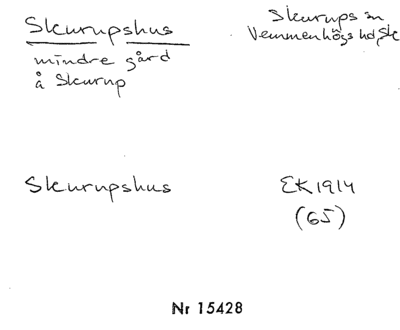 Skurupshus
Skurups sn
Vemmenhögs hd, Sk
mindre gård
å Skurup
Skurupshus
EK 1914
(65)
Nr 15428